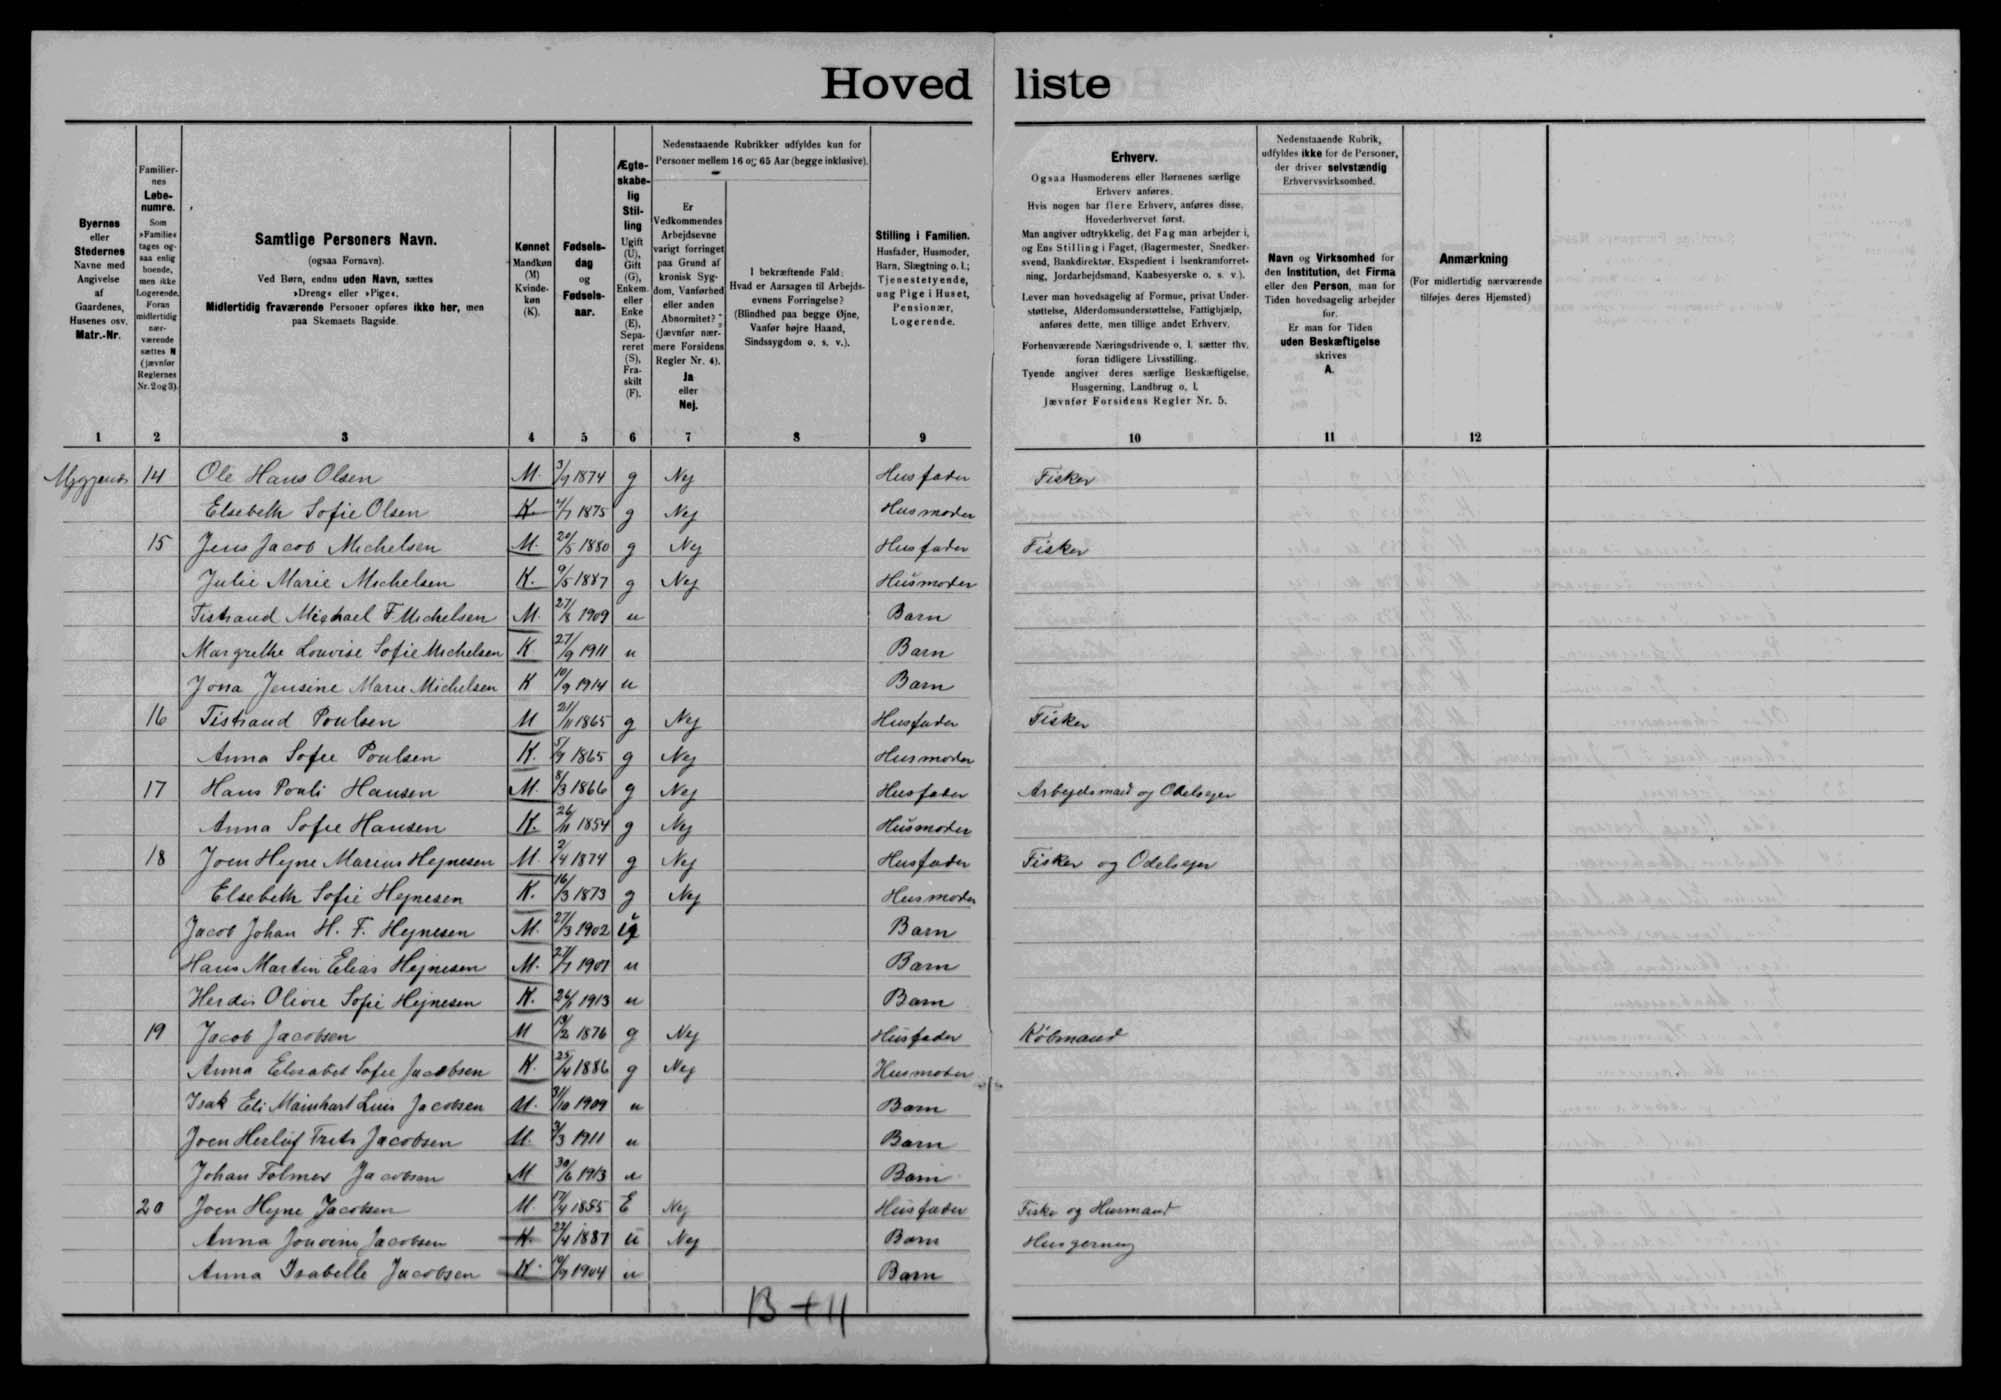 Hoved liste
Byernes
eller
Stedernes
Navne med
Angivelse
af
Gaardenes,
Husenes osv.
Matr.-Nr.
Familier-
nes
Løbe-
numre.
Som
»Familie«
tages og-
saa enlig
boende,
men ikke
Logerende.
Foran
midlertidig
nær-
værende
sættes N
(jævnfør
Reglernes
Nr. 2 og 3).
Samtlige Personers Navn.
(ogsaa Fornavn).
Ved Børn, endnu uden Navn, sættes
»Dreng« eller »Pige«.
Midlertidig fraværende Personer opføres ikke her, men
paa Skemaets Bagside.
Kønnet
Mandkøn
(M)
Kvinde-
køn
(K).
Fødsels-
dag
og
Fødsels-
aar.
Ægte-
skabe-
lig
Stil-
ling
Ugift
(U),
Gift
(G),
Enkem.
eller
Enke
(E),
Sepa-
reret
(S),
Fra-
skilt
(F).
Nedenstaaende Rubrikker udfyldes kun for
Personer mellem 16 og 65 Aar (begge inklusive).
Er
Vedkommendes
Arbejdsevne
varigt forringet
paa Grund af
kronisk Syg-
dom, Vanførhed
eller anden
Abnormitet?
(Jævnfør nær-
mere Forsidens
Regler Nr. 4).
Ja
eller
Nej.
I bekræftende Fald:
Hvad er Aarsagen til Arbejds-
evnens Forringelse?
(Blindhed paa begge Øjne,
Vanfør højre Haand,
Sindssygdom o. s. v.).
Stilling i Familien.
Husfader, Husmoder,
Barn, Slægtning o. l.;
Tjenestetyende,
ung Pige i Huset,
Pensionær,
Logerende.
Erhverv.
Ogsaa Husmoderens eller Børnenes særlige
Erhverv anføres.
Hvis nogen har flere Erhverv, anføres disse,
Hovederhvervet først.
Man angiver udtrykkelig, det Fag man arbejder i,
og Ens Stilling i Faget, (Bagermester, Snedker-
svend, Bankdirektør, Ekspedient i Isenkramforret-
ning, Jordarbejdsmand, Kaabesyerske o. s. v.).
Lever man hovedsagelig af Formue, privat Under-
støttelse, Alderdomsunderstøttelse, Fattighjælp,
anføres dette, men tillige andet Erhverv.
Forhenværende Næringsdrivende o. l. sætter thv.
foran tidligere Livsstilling.
Tyende angiver deres særlige Beskæftigelse,
Husgerning, Landbrug o. l.
Jævnfør Forsidens Regler Nr. 5.
Nedenstaaende Rubrik,
udfyldes ikke for de Personer,
der driver selvstændig
Erhvervsvirksomhed.
Navn og Virksomhed for
den Institution, det Firma
eller den Person, man for
Tiden hovedsagelig arbejder
for.
Er man for Tiden
uden Beskæftigelse
skrives
A.
Anmærkning
(For midlertidig nærværende
tilføjes deres Hjemsted)
1 2 3 4 5 6 7 8 9 10 11 12
14 Ole Hans Olsen M. 3/9 1874 g Nej Husfader Fisker
Elsebeth Sofie Olsen K. 4/7 1875 g Nej Husmoder
15 Jens Jacob Michelsen M. 20/5 1880 g Nej Husfader Fisker
Julie Marie Michelsen K. 9/5 1887 g Nej Husmoder
Tistrand Michael F Michelsen M. 27/8 1909 u Barn
Margrethe Louvise Sofie Michelsen K 27/9 1911 u Barn
Jona Jensine Marie Michelsen K 10/9 1914 u Barn
16 Tistrand Poulsen M 21/11 1865 g Nej Husfader Fisker
Anna Sofie Poulsen K. 1865 g Nej Husmoder
17 Hans Pouli Hansen M. 8/3 1866 g Nej Husfader Arbejdsmand og Odelsejer
Anna Sofie Hansen K. 26/11 1854 g Nej Husmoder
18 Joen Hejne Marius Hejnesen M. 2/4 1874 g Nej Husfader Fisker og Odelsejer
Elsebeth Sofie Hejnesen K. 16/3 1873 g Nej Husmoder
Jacob Johan H. F. Hejnesen M. 27/3 1902 Barn
Hans Martin Elias Hejnesen M. u Barn
Herdis Olivie Sofie Hejnesen K. 1913 u Barn
19 Jacob Jacobsen M 1876 g Nej Husfader Købmand
Anna Elisabet Sofie Jacobsen K. 25/4 1886 g Nej Husmoder
Isak Eli Mainhart Luis Jacobsen M. 31/10 1909 u Barn
Joen Herluf Frits Jacobsen M. 1911 u Barn
Johan Folmer Jacobsen M 30/6 1913 u Barn
20 Joen Hejne Jacobsen M. 17/4 1855 E Nej Husfader Fisker og Husmand
Anna Jouvine Jacobsen K. 22/4 1887 u Nej Barn Husgerning
Anna Isabelle Jacobsen K. 10/9 1904 u Barn
13 + 11